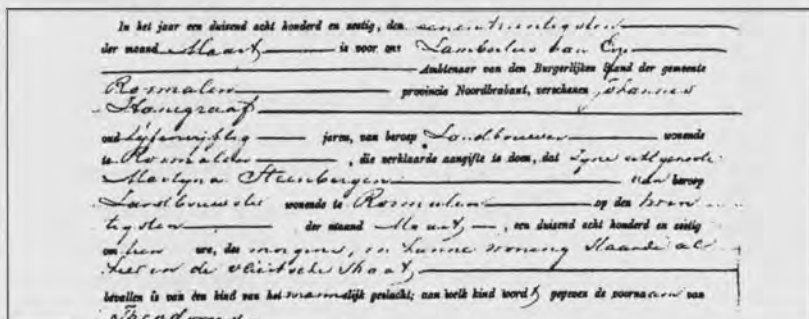 In het jaar een duizend acht honderd en zestig, den eenentwintigsten
der maand Maart is voor ons Lambertus van Erp
Ambtenaar van den Burgerlijken Stand der gemeente
Rosmalen provincie Noordbrabant, verschenen Johannes
Hanegraaf
oud vijfenvijftig jaren, van beroep Landbouwer wonende
te Rosmalen, die verklaarde aangifte te doen, dat zyne echtgenoote
Martyna Steenbergen van beroep
Landbouwster wonende te Rosmalen op den twin
tigsten der maand Maart, een duizend acht honderd en zestig
om tien ure, des morgens, in hunne woning staande al
hier in de vlietsche straat,
bevallen is van één kind van het mannelijk geslacht; aan welk kind wordt gegeven de voornaam van
Theodorus